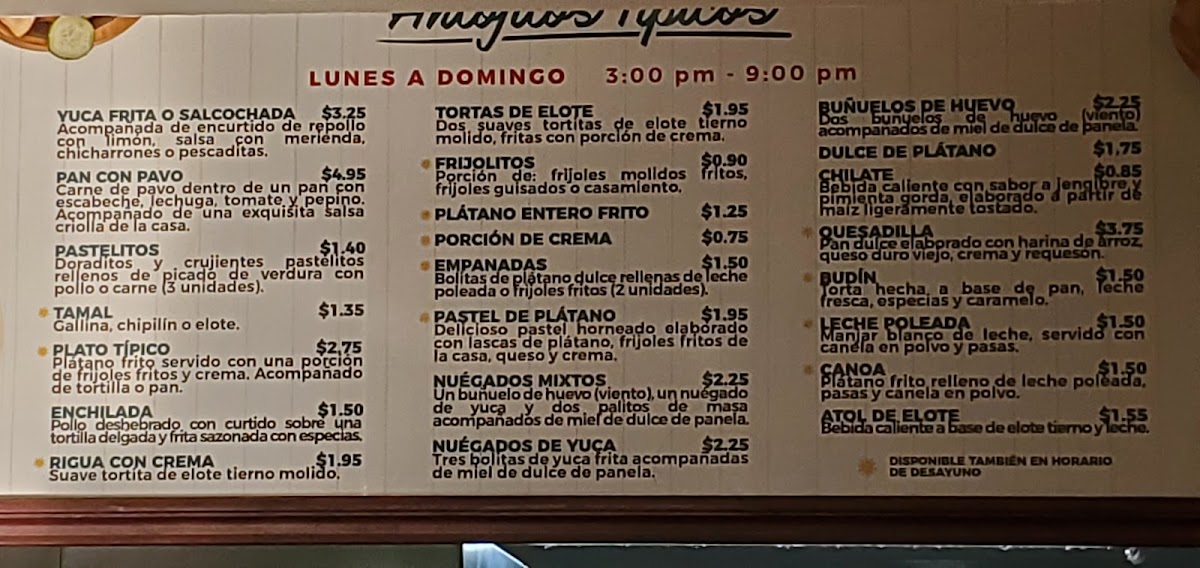 Antojitos Típicos
LUNES A DOMINGO 3:00 pm - 9:00 pm
YUCA FRITA O SALCOCHADA $3.25
Acompañada de encurtido de repollo
con limón, salsa con merienda,
chicharrones o pescaditas.
PAN CON PAVO $4.95
Carne de pavo dentro de un pan con
escabeche, lechuga, tomate y pepino.
Acompañado de una exquisita salsa
criolla de la casa.
PASTELITOS $1.40
Doraditos y crujientes pastelitos
rellenos de picado de verdura con
pollo o carne (3 unidades).
TAMAL $1.35
Gallina, chipilín o elote.
PLATO TÍPICO $2.75
Plátano frito servido con una porción
de frijoles fritos y crema. Acompañado
de tortilla o pan.
ENCHILADA $1.50
Pollo deshebrado con curtido sobre una
tortilla delgada y frita sazonada con especias.
RIGUA CON CREMA $1.95
Suave tortita de elote tierno molido.
TORTAS DE ELOTE $1.95
Dos suaves tortitas de elote tierno
molido, fritas con porción de crema.
FRIJOLITOS $0.90
Porción de: frijoles molidos fritos,
frijoles guisados o casamiento.
PLÁTANO ENTERO FRITO $1.25
PORCIÓN DE CREMA $0.75
EMPANADAS $1.50
Bolitas de plátano dulce rellenas de leche
poleada o frijoles fritos (2 unidades).
PASTEL DE PLÁTANO $1.95
Delicioso pastel horneado elaborado
con lascas de plátano, frijoles fritos de
la casa, queso y crema.
NUÉGADOS MIXTOS $2.25
Un buñuelo de huevo (viento), un nuégado
de yuca y dos palitos de masa
acompañados de miel de dulce de panela.
NUÉGADOS DE YUCA $2.25
Tres bolitas de yuca frita acompañadas
de miel de dulce de panela.
BUÑUELOS DE HUEVO $2.25
Dos buñuelos de huevo (viento)
acompañados de miel de dulce de panela.
DULCE DE PLÁTANO $1.75
CHILATE $0.85
Bebida caliente con sabor a jengibre y
pimienta gorda, elaborado a partir de
maíz ligeramente tostado.
QUESADILLA $3.75
Pan dulce elaborado con harina de arroz,
queso duro viejo, crema y requesón.
BUDÍN $1.50
Torta hecha, a base de pan, leche
fresca, especias y caramelo.
LECHE POLEADA $1.50
Manjar blanco de leche, servido con
canela en polvo y pasas.
CANOA $1.50
Plátano frito relleno de leche poleada,
pasas y canela en polvo.
ATOL DE ELOTE $1.55
Bebida caliente a base de elote tierno y leche.
DISPONIBLE TAMBIÉN EN HORARIO
DE DESAYUNO